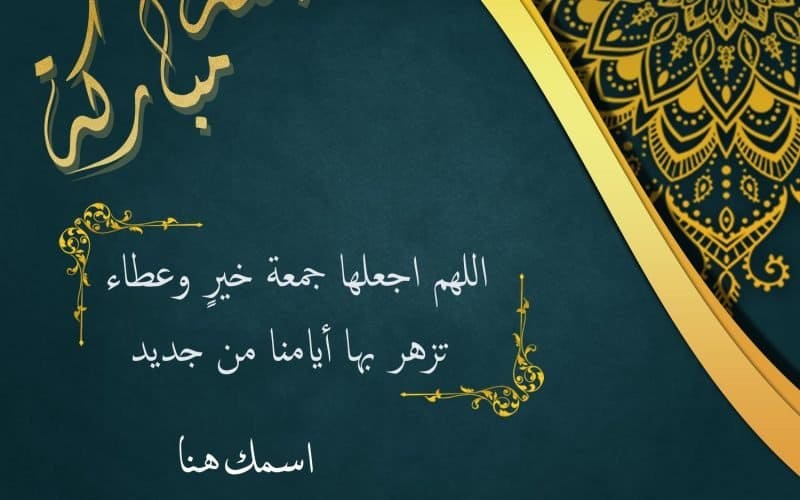 مباركة
اللهم اجعلها جمعة خيرٍ وعطاء
تزهر بها أيامنا من جديد
اسمك هنا